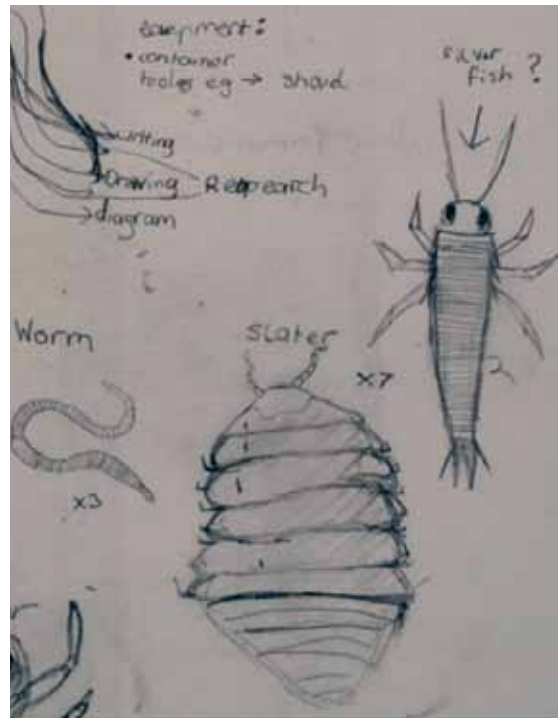 Equipment:
• container
tools eg → shovel
silver
fish ?
writing
Drawing Research
diagram
Worm
Slater
x7
x3